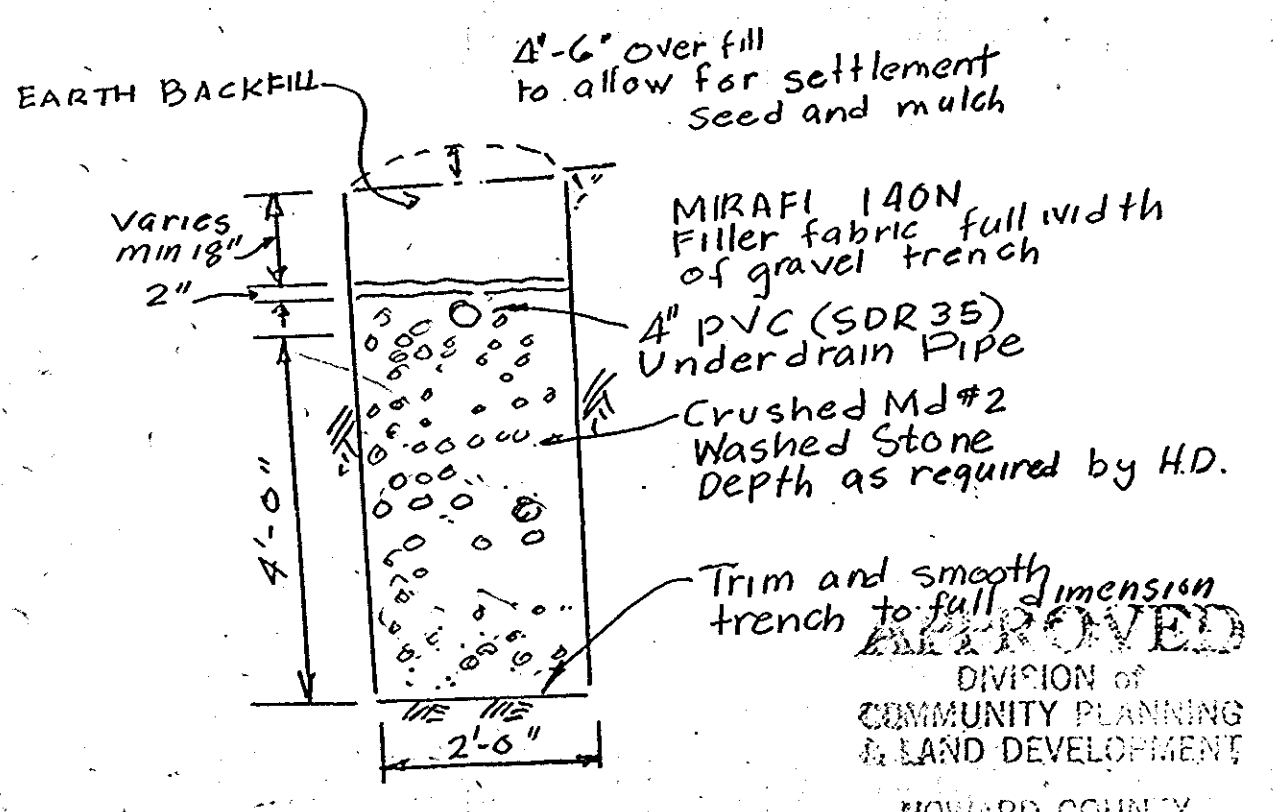 4"-6" over fill
to allow for settlement
seed and mulch
EARTH BACKFILL
MIRAFI 140N
Filler fabric full width
of gravel trench
Varies
min 18"
2"
4" PVC (SDR 35)
Underdrain Pipe
Crushed Md #2
Washed Stone
Depth as required by H.D.
4'-0"
Trim and smooth
trench to full dimension
2'-0"
APPROVED
DIVISION of
COMMUNITY PLANNING
& LAND DEVELOPMENT
HOWARD COUNTY